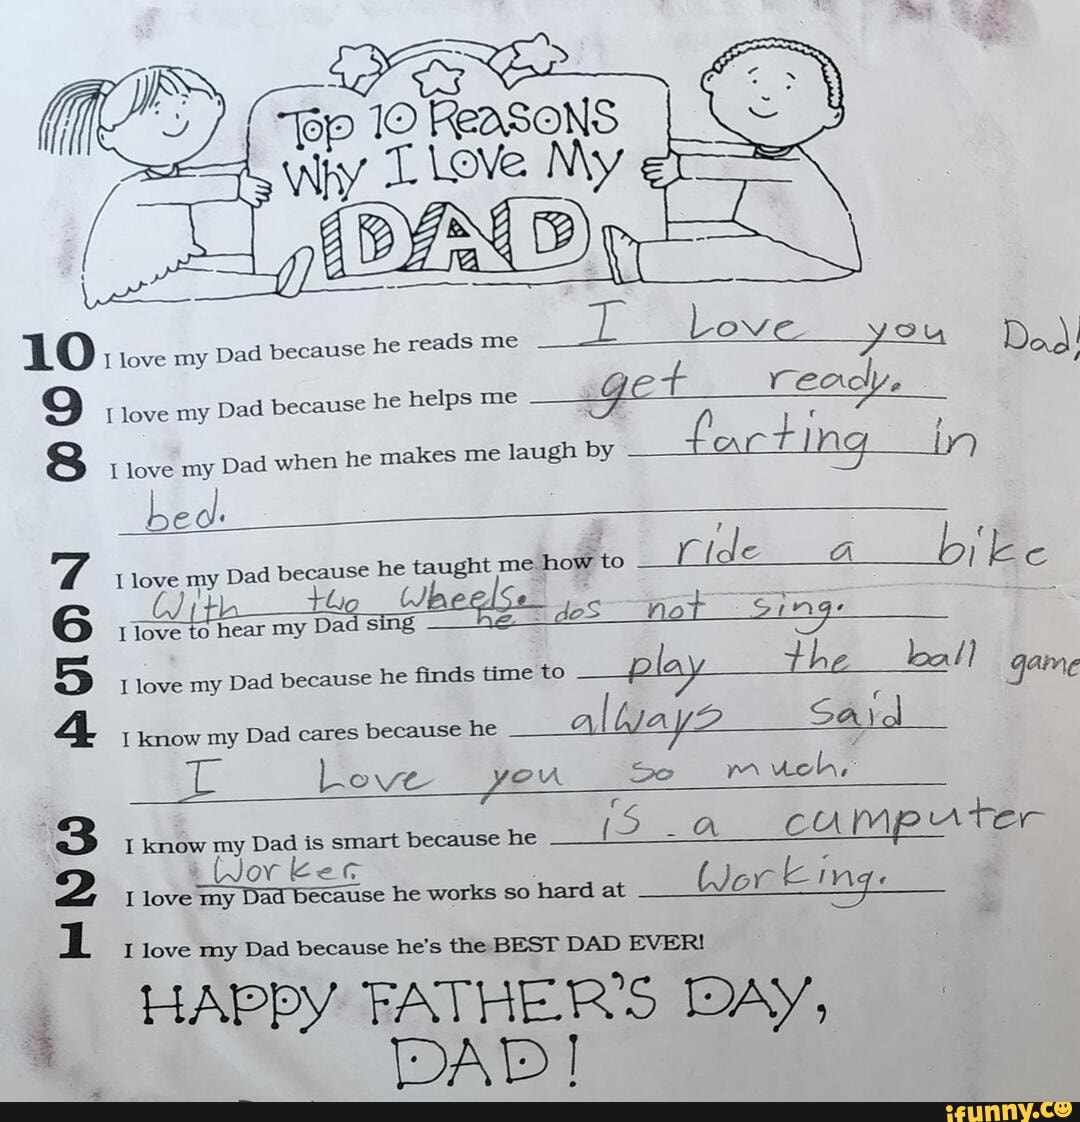 Top 10 Reasons
Why I Love My
DAD
10 I love my Dad because he reads me I Love you Dad!
9 I love my Dad because he helps me get ready.
8 I love my Dad when he makes me laugh by farting in
bed.
7 I love my Dad because he taught me how to ride a bike
With two wheels.
6 I love to hear my Dad sing he dos not sing.
5 I love my Dad because he finds time to play the ball game
4 I know my Dad cares because he always said
I Love you so much.
3 I know my Dad is smart because he is a cumputer
Worker.
2 I love my Dad because he works so hard at Working.
1 I love my Dad because he's the BEST DAD EVER!
HAPPY FATHER'S DAY,
DAD!
ifunny.co